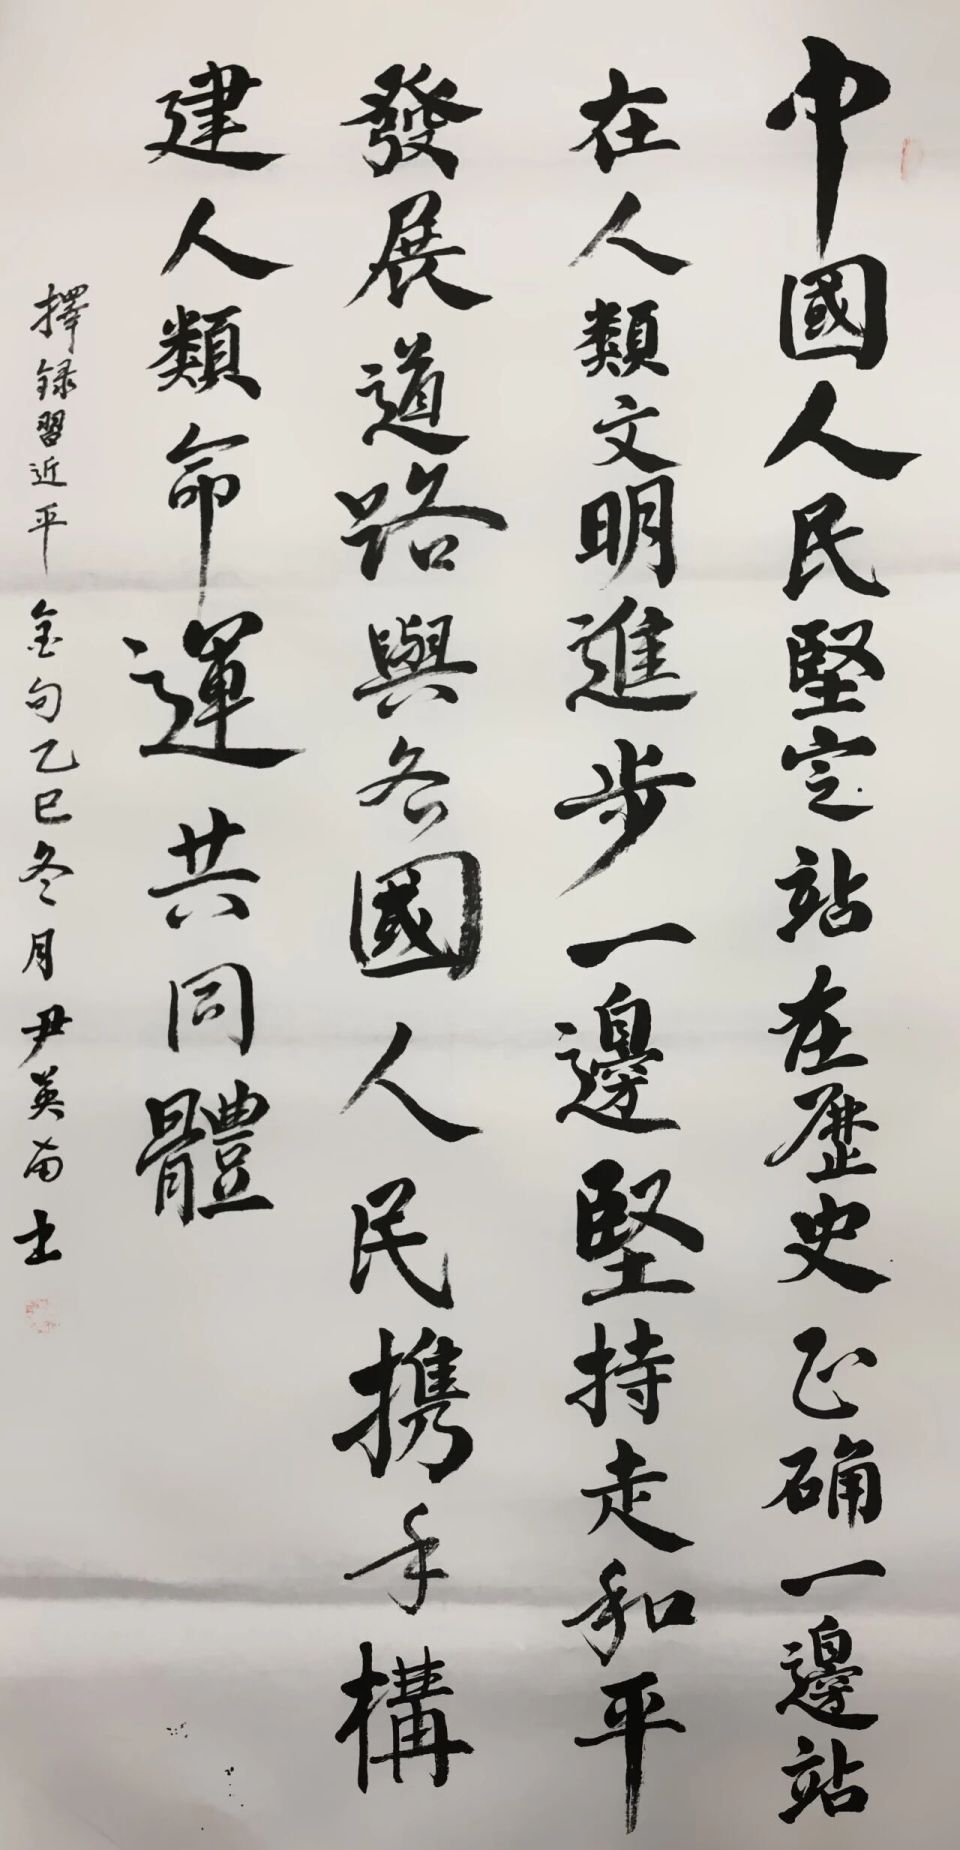 中國人民堅定站在歷史正确一邊站
在人類文明進步一邊堅持走和平
發展道路與各國人民携手構
建人類命運共同體
擇録習近平金句乙巳冬月尹英南書